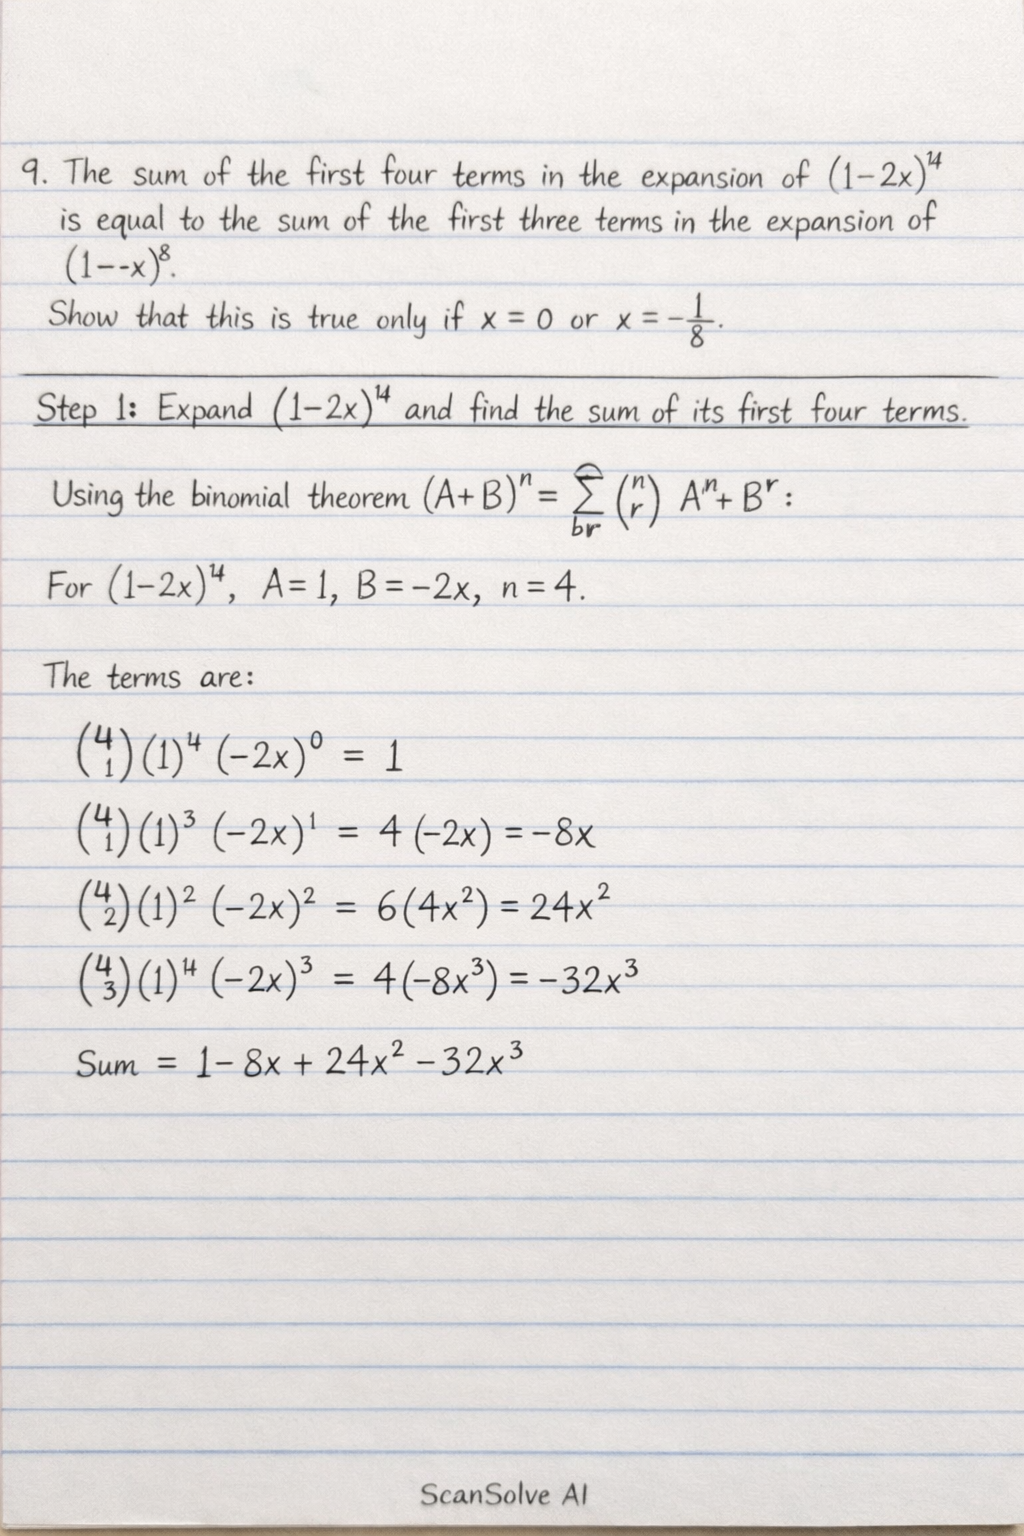 9. The sum of the first four terms in the expansion of (1-2x)¹⁴
is equal to the sum of the first three terms in the expansion of
(1--x)⁸.
Show that this is true only if x = 0 or x = -1/8.
Step 1: Expand (1-2x)¹⁴ and find the sum of its first four terms.
Using the binomial theorem (A+B)ⁿ = ∑ br (n r) Aⁿ+ Bʳ :
For (1-2x)¹⁴, A = 1, B = -2x, n = 4.
The terms are:
(4 1)(1)⁴ (-2x)⁰ = 1
(4 1)(1)³ (-2x)¹ = 4 (-2x) = -8x
(4 2)(1)² (-2x)² = 6(4x²) = 24x²
(4 3)(1)¹⁴ (-2x)³ = 4(-8x³) = -32x³
Sum = 1 - 8x + 24x² - 32x³
ScanSolve AI